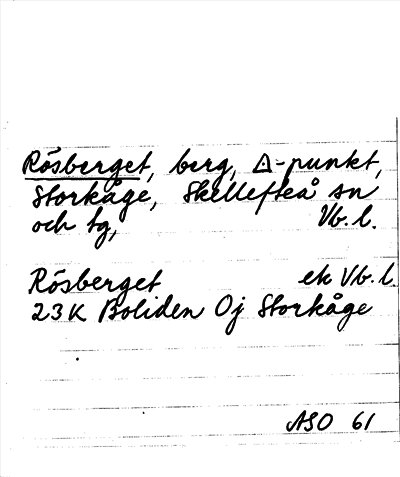 Rösberget, berg, △-punkt,
Storkåge, Skellefteå sn
och tg, Vb. l.
Rösberget ek Vb. l.
23K Boliden Oj Storkåge
ASO 61